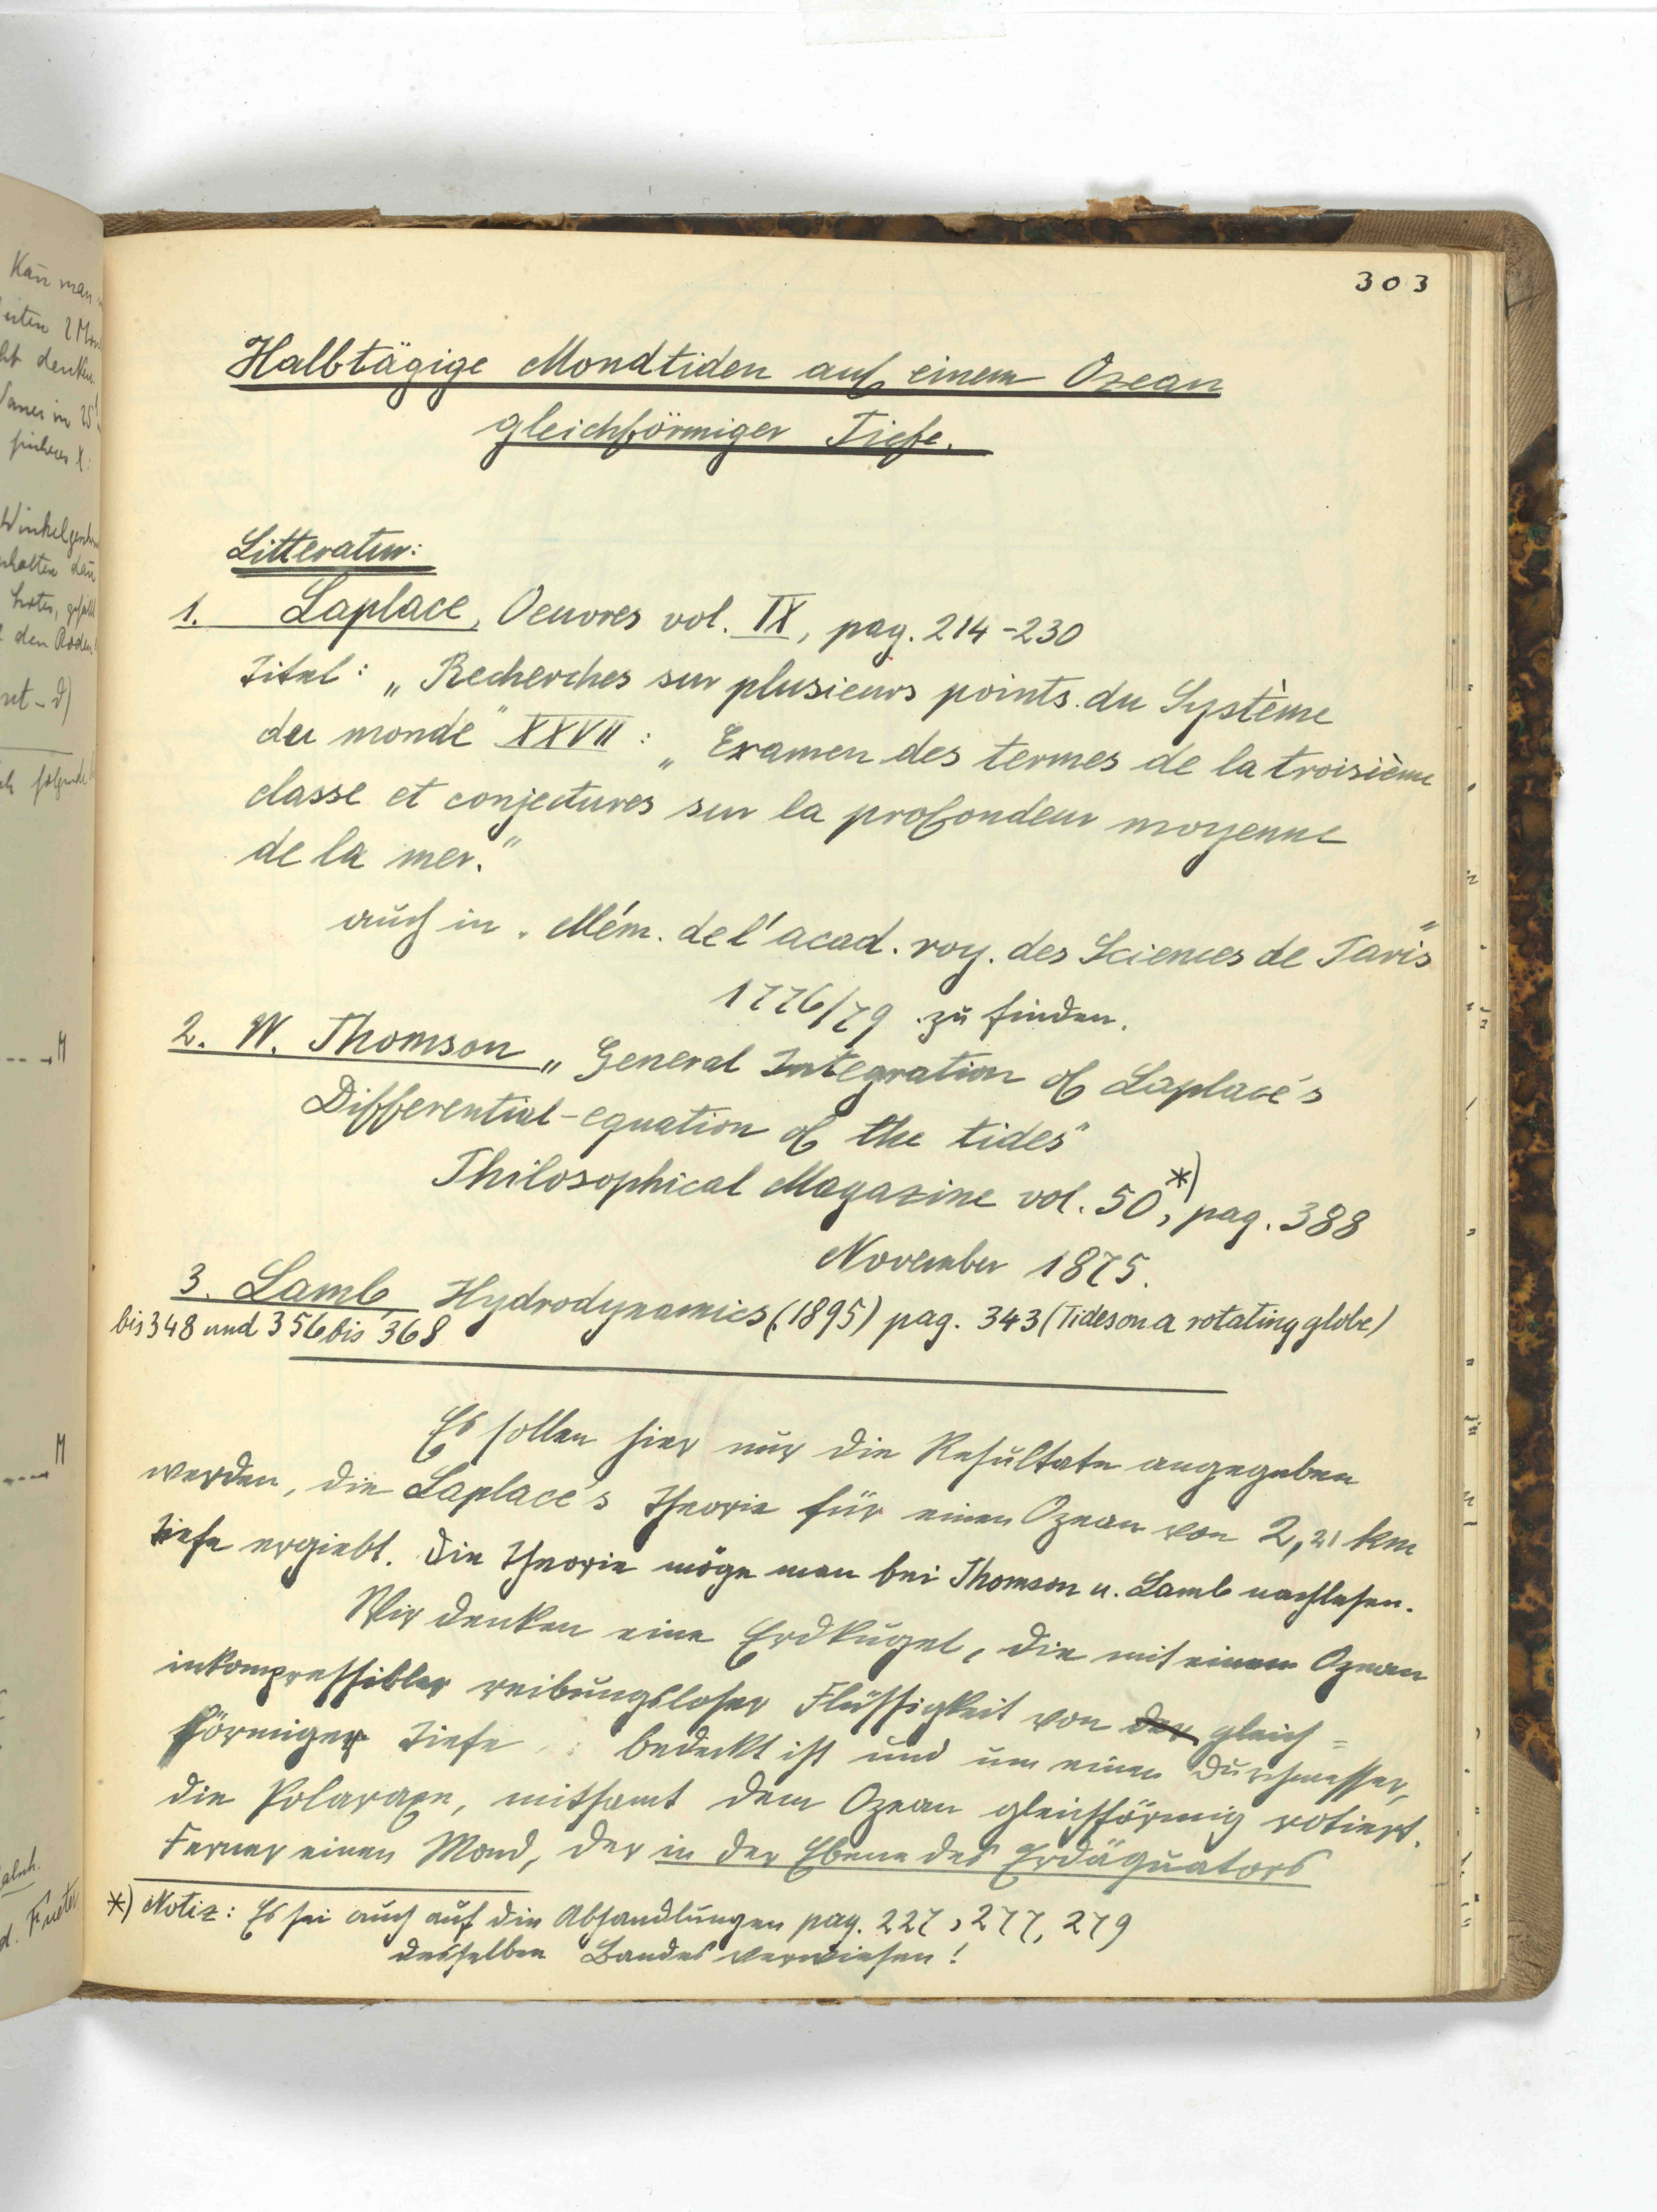 303
Halbtägige Mondtiden auf einem Ozean
gleichförmiger Tiefe.
Litteratur:
1. Laplace, Oeuvres vol. IX, pag. 214-230
Titel: „Recherches sur plusieurs points du Système
du monde" XXVII: „Examen des termes de la troisième
classe et conjectures sur la profondeur moyenne
de la mer."
auch in „Mém. de l'acad. roy. des Sciences de Paris"
1776/79 zu finden.
2. W. Thomson „General Integration of Laplace's
Differential-equation of the tides"
Philosophical Magazine vol. 50,*) pag. 388
November 1875.
3. Lamb, Hydrodynamics (1895) pag. 343 (Tides on a rotating globe)
bis 348 und 356 bis 368
Es sollen hier nur die Resultate angegeben
werden, die Laplace's Theorie für einen Ozean von 2,21 km
Tiefe ergiebt. Die Theorie möge man bei Thomson u. Lamb nachlesen.
Wir denken eine Erdkugel, die mit einem Ozean
inkompressibler reibungsloser Flüssigkeit von der gleich=
förmiger Tiefe bedeckt ist und um einen Durchmesser,
die Polaraxe, mitsamt dem Ozean gleichförmig rotiert.
Ferner einen Mond, der in der Ebene des Erdäquators
*) Notiz: Es sei auch auf die Abhandlungen pag. 227, 277, 279
desselben Bandes verwiesen!
Kan̄ man
denken
Winkelgeschw
den Boden
folgende
M
M